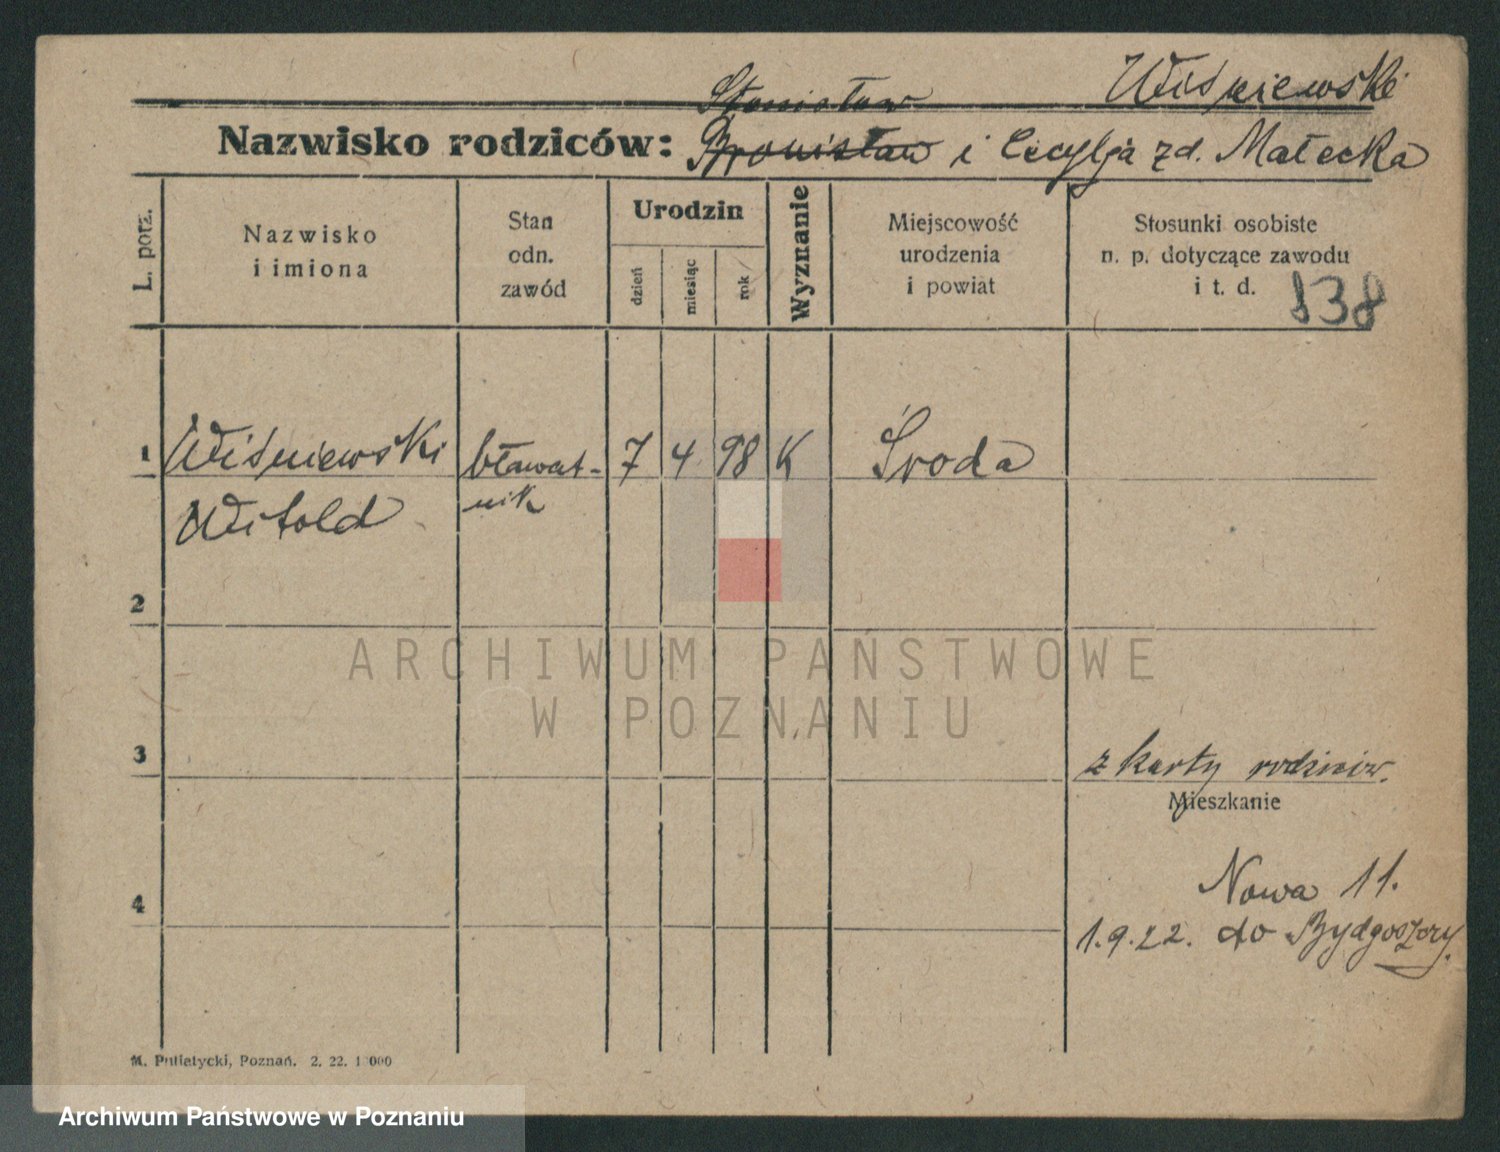 Wiśniewski
Stanisław
Nazwisko rodziców: Bronisław i Cecylja zd. Małecka
L. porz.
Nazwisko
i imiona
Stan
odn.
zawód
Urodzin
dzień
miesiąc
rok
Wyznanie
Miejscowość
urodzenia
i powiat
Stosunki osobiste
n. p. dotyczące zawodu
i t. d.
838
1 Wiśniewski bławat- 7 4 98 K Środa
Witold nik
2
ARCHIWUM PAŃSTWOWE
W POZNANIU
3
z karty rodziców.
Mieszkanie
4
Nowa 11.
1.9.22. do Bydgoszczy.
M. Putiatycki, Poznań. 2. 22. 1 000
Archiwum Państwowe w Poznaniu